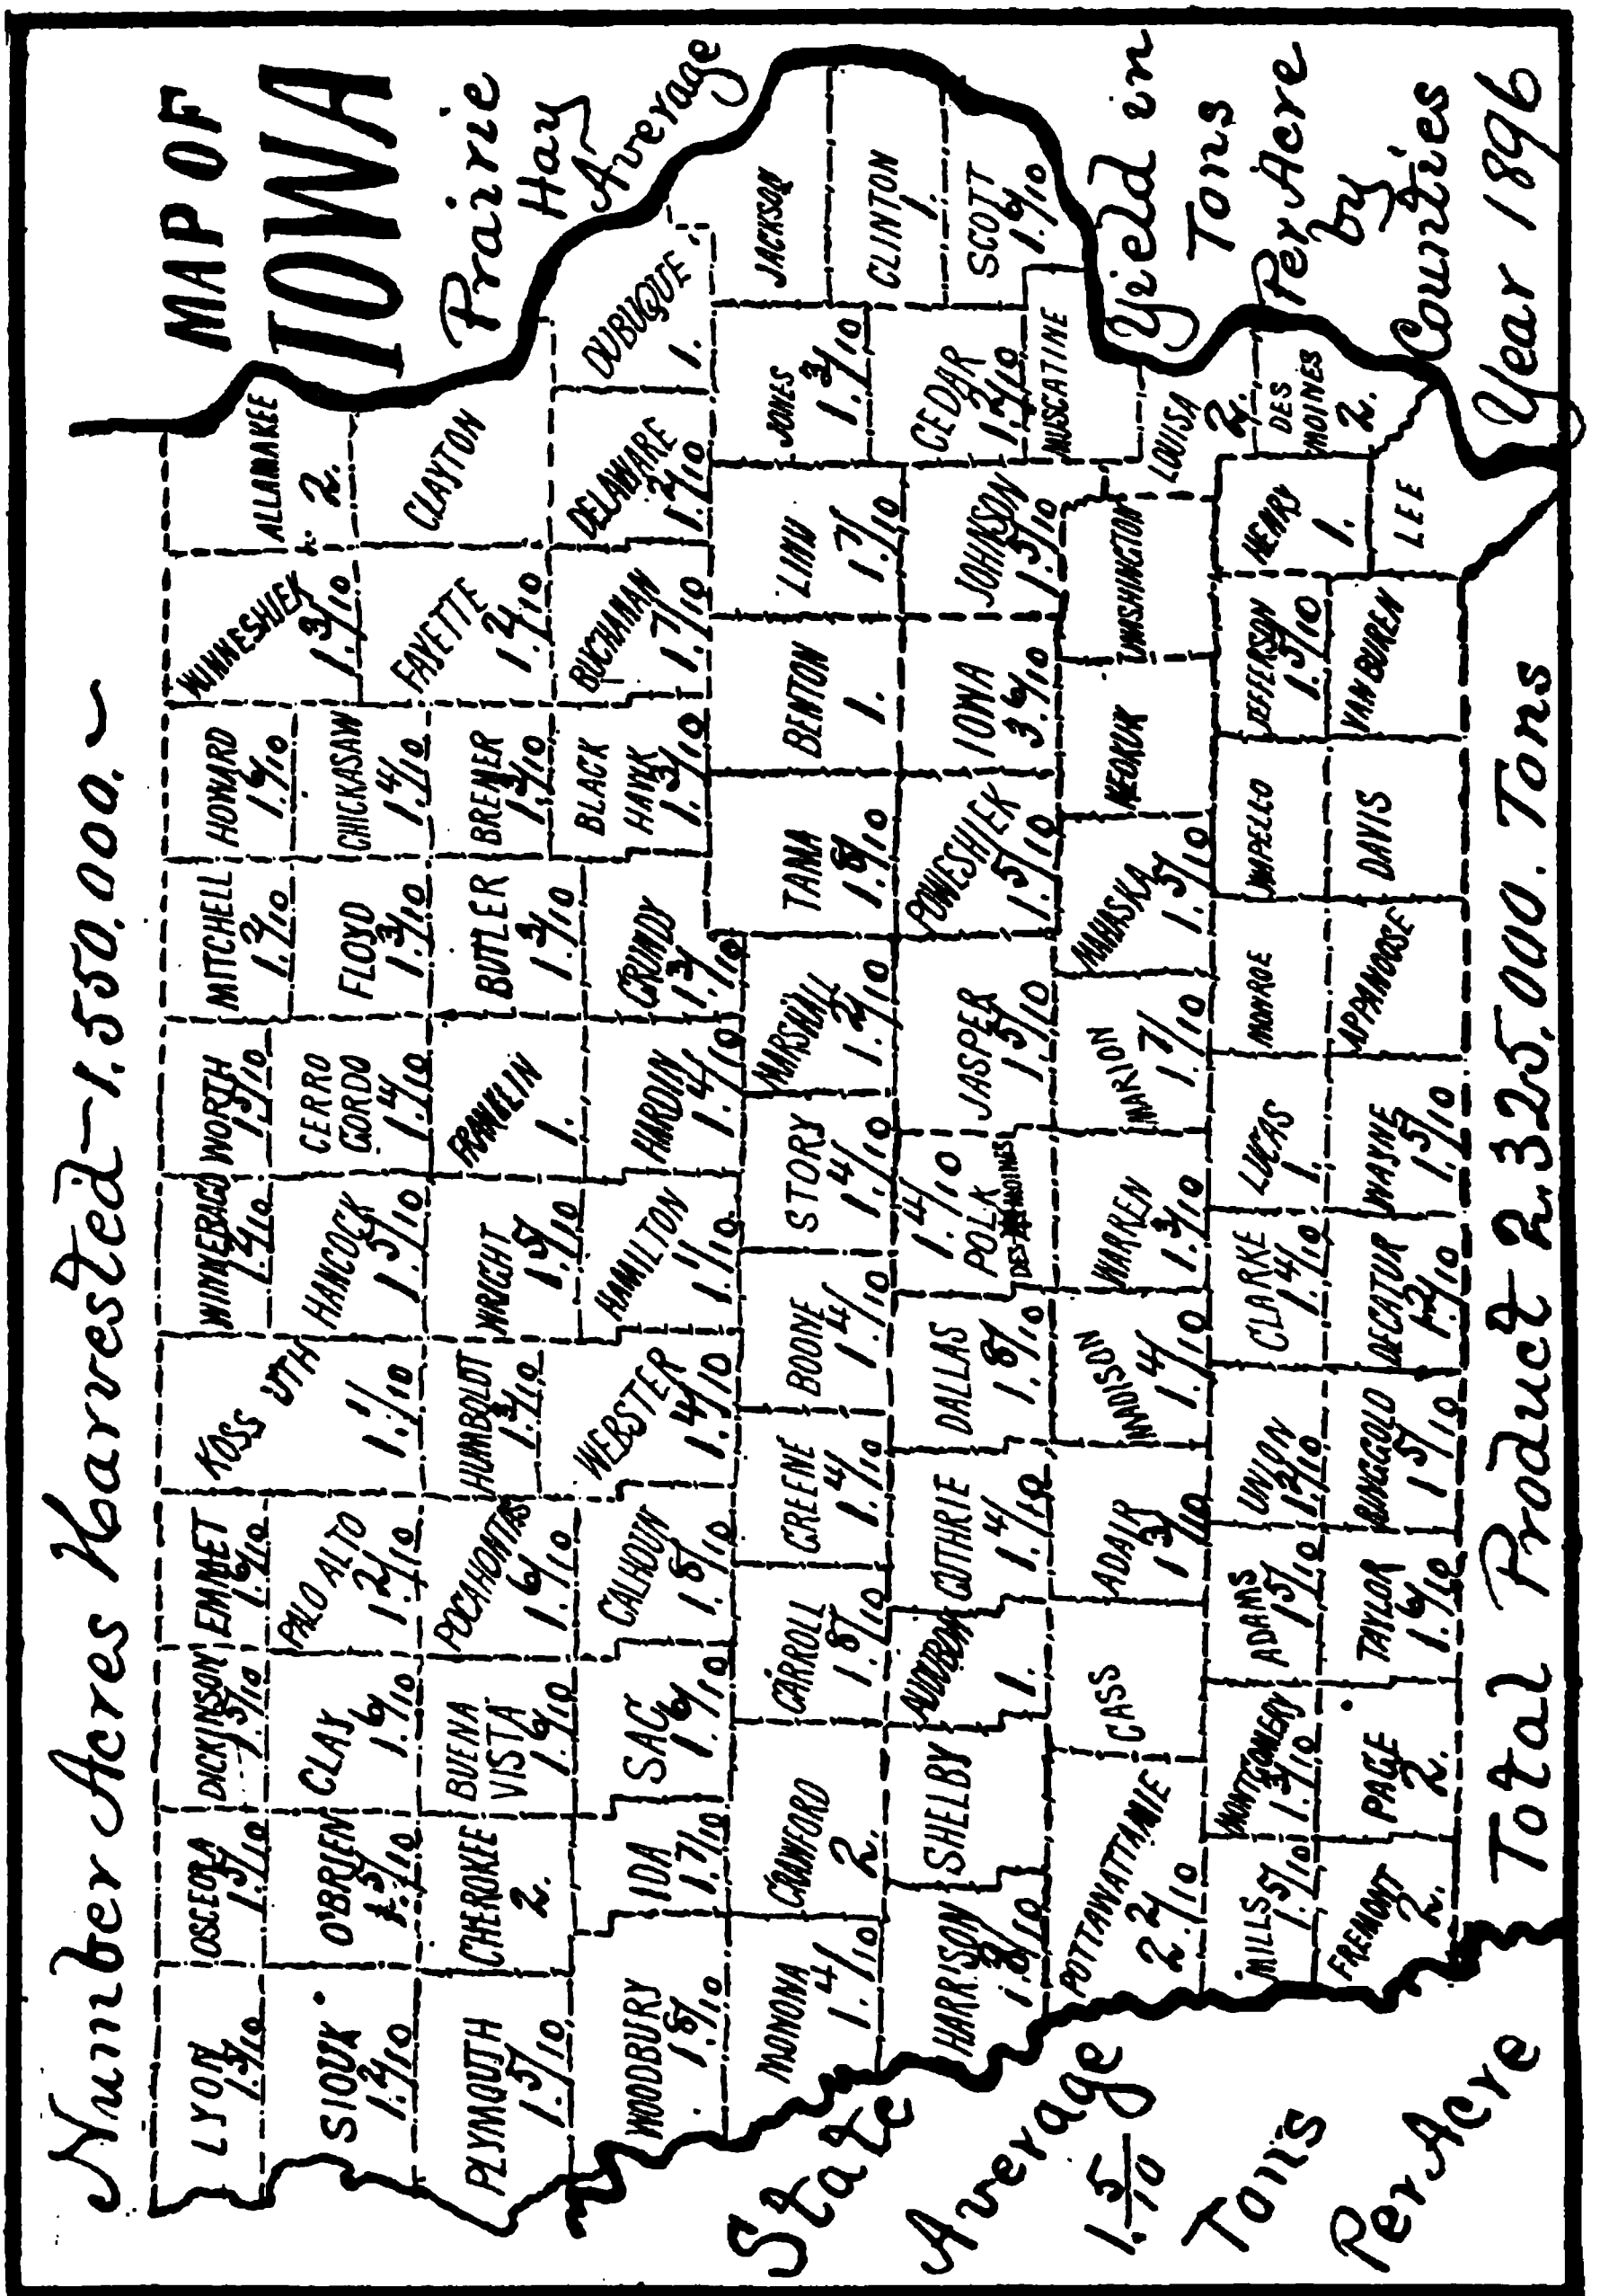 Number Acres Harvested—1.550.000.~
MAP OF
IOWA
Prairie
Hay
Average
Yield in
Tons
Per Acre
by
Counties
Year 1896
LYON
OSCEOLA
1.5/10
DICKINSON
1.5/10
EMMET
1.6/10
WINNEBAGO
1.2/10
WORTH
1.5/10
MITCHELL
1.2/10
HOWARD
1.6/10
WINNESHIEK
1.3/10
ALLAMAKEE
2.
SIOUX
1.2/10
O'BRIEN
1.5/10
CLAY
1.6/10
PALO ALTO
1.2/10
KOSSUTH
1.1/10
HANCOCK
1.5/10
CERRO
GORDO
1.4/10
FLOYD
1.3/10
CHICKASAW
1.4/10
FAYETTE
1.2/10
CLAYTON
PLYMOUTH
1.5/10
CHEROKEE
2.
BUENA
VISTA
1.6/10
POCAHONTAS
1.6/10
HUMBOLDT
1.3/10
WRIGHT
1.5/10
FRANKLIN
1.
BUTLER
1.3/10
BREMER
1.3/10
WOODBURY
1.8/10
IDA
1.7/10
SAC
1.6/10
CALHOUN
1.8/10
WEBSTER
1.4/10
HAMILTON
1.1/10
HARDIN
1.4/10
GRUNDY
1.3/10
BLACK
HAWK
1.3/10
BUCHANAN
1.7/10
DELAWARE
1.2/10
DUBUQUE
1.
MONONA
1.4/10
CRAWFORD
2.
CARROLL
1.8/10
GREENE
1.4/10
BOONE
1.4/10
STORY
1.4/10
MARSHALL
1.2/10
TAMA
1.8/10
BENTON
1.
LINN
1.7/10
JONES
1.3/10
JACKSON
HARRISON
1.8/10
SHELBY
AUDUBON
1.
GUTHRIE
1.4/10
DALLAS
1.8/10
1.4/10
POLK
DES MOINES
JASPER
1.5/10
POWESHIEK
1.5/10
IOWA
3.6/10
JOHNSON
1.5/10
CEDAR
1.2/10
CLINTON
1.
SCOTT
1.6/10
MUSCATINE
POTTAWATTAMIE
2.2/10
CASS
ADAIR
1.3/10
MADISON
1.4/10
WARREN
1.3/10
MARION
1.7/10
MAHASKA
1.5/10
KEOKUK
WASHINGTON
LOUISA
2.
MILLS
1.5/10
MONTGOMERY
1.3/10
ADAMS
1.5/10
UNION
1.2/10
CLARKE
1.4/10
LUCAS
1.
MONROE
WAPELLO
JEFFERSON
1.5/10
HENRY
1.
DES
MOINES
2.
FREMONT
2.
PAGE
2.
TAYLOR
1.6/10
RINGGOLD
1.5/10
DECATUR
1.2/10
WAYNE
1.5/10
APPANOOSE
DAVIS
VAN BUREN
LEE
State
Average
1.5/10
Tons
Per Acre
Total Product 2.325.000. Tons